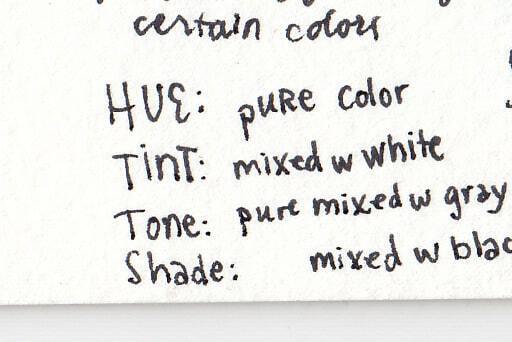 certain colors
HUE: pure color
Tint: mixed w white
Tone: pure mixed w gray
Shade: mixed w blac